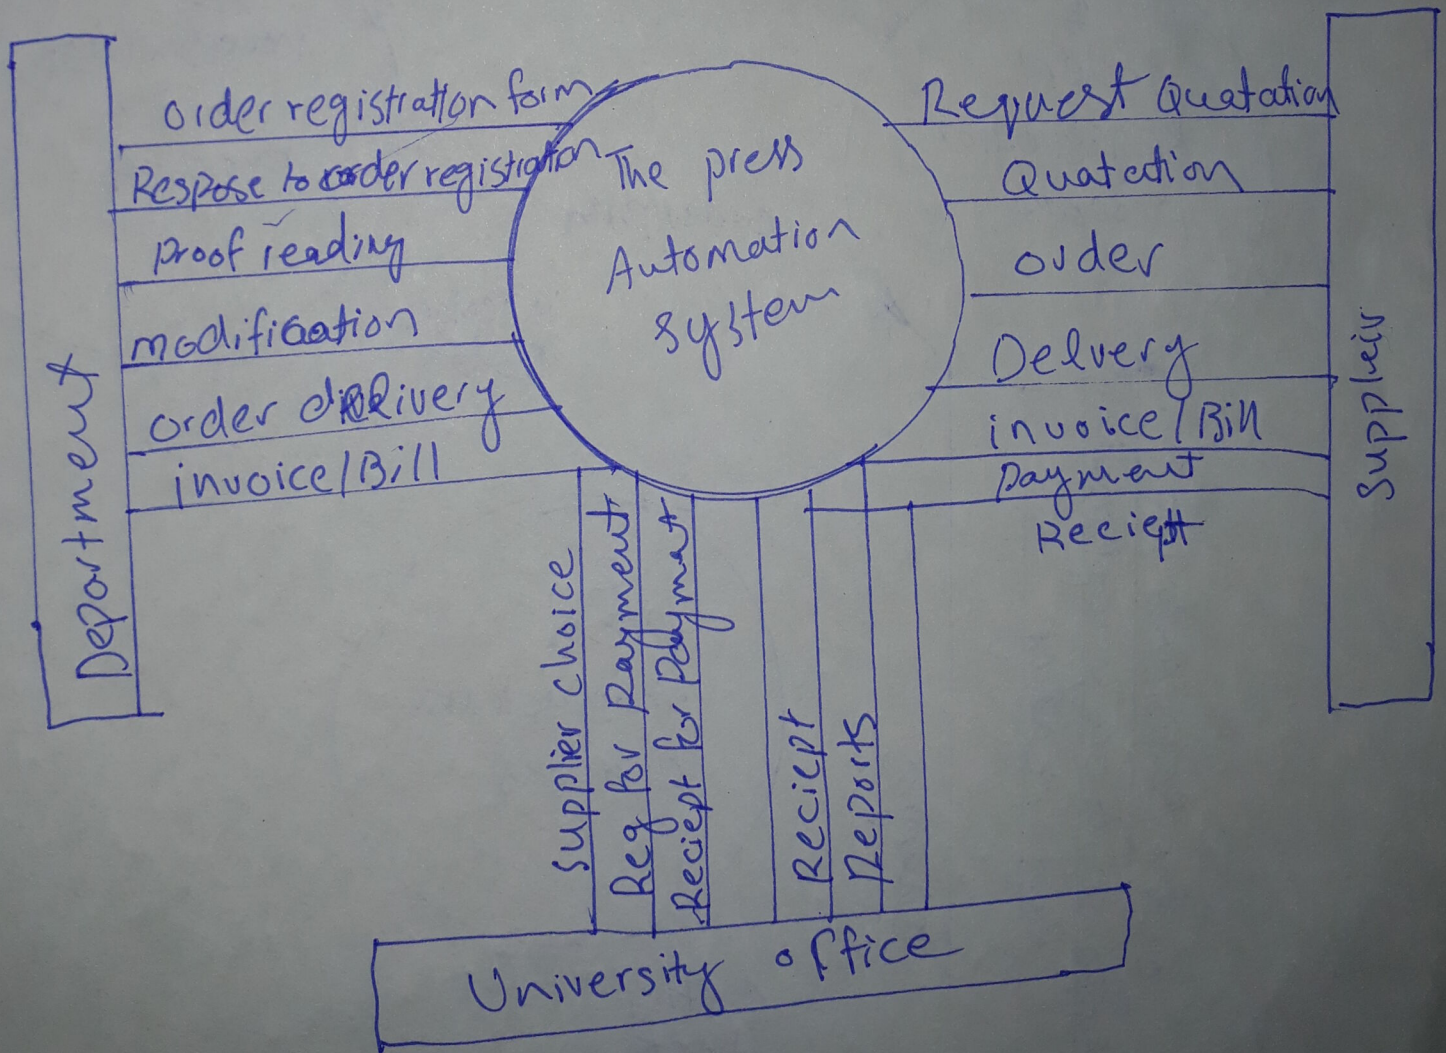 order registration form
Respose to order registration
Proof reading
modification
order delivery
invoice/Bill
Department
The press
Automation
system
Request Quatation
Quatation
order
Delvery
invoice/Bill
Payment
Reciept
Supplier
Supplier choice
Req for Payment
Reciept for Payment
Reciept
Reports
University office